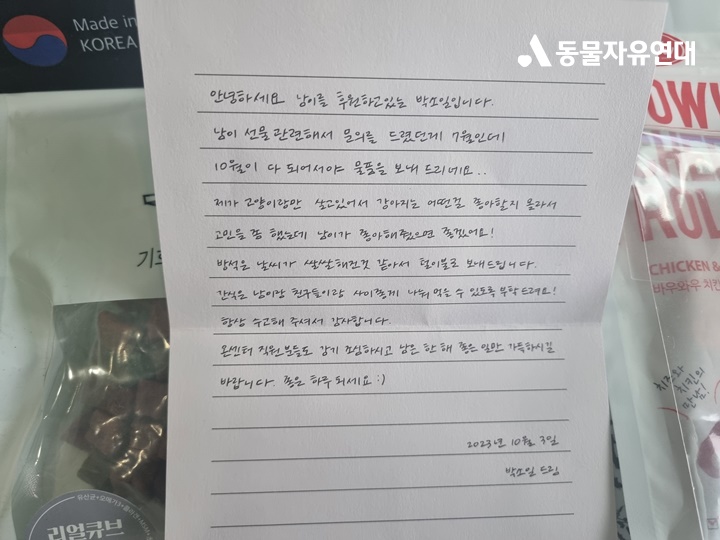 Made in
KOREA
동물자유연대
안녕하세요 남이를 후원하고있는 박소일입니다.
남이 선물 관련해서 문의를 드렸던게 7월인데
10월이 다 되어서야 물품을 보내 드리네요..
제가 고양이랑만 살고있어서 강아지는 어떤걸 좋아할지 몰라서
고민을 좀 했는데 남이가 좋아해줬으면 좋겠어요!
방석은 날씨가 쌀쌀해진것 같아서 털이불로 보내드립니다.
간식은 남이랑 친구들이랑 사이좋게 나눠 먹을 수 있도록 부탁드려요!
항상 수고해 주셔서 감사합니다.
온센터 직원분들도 감기 조심하시고 남은 한 해 좋은 일만 가득하시길
바랍니다. 좋은 하루 되세요 :)
2023년 10월 3일
박소일 드림
CHICKEN &
바우와우 치킨
치즈와
치킨의
만남!
리얼큐브